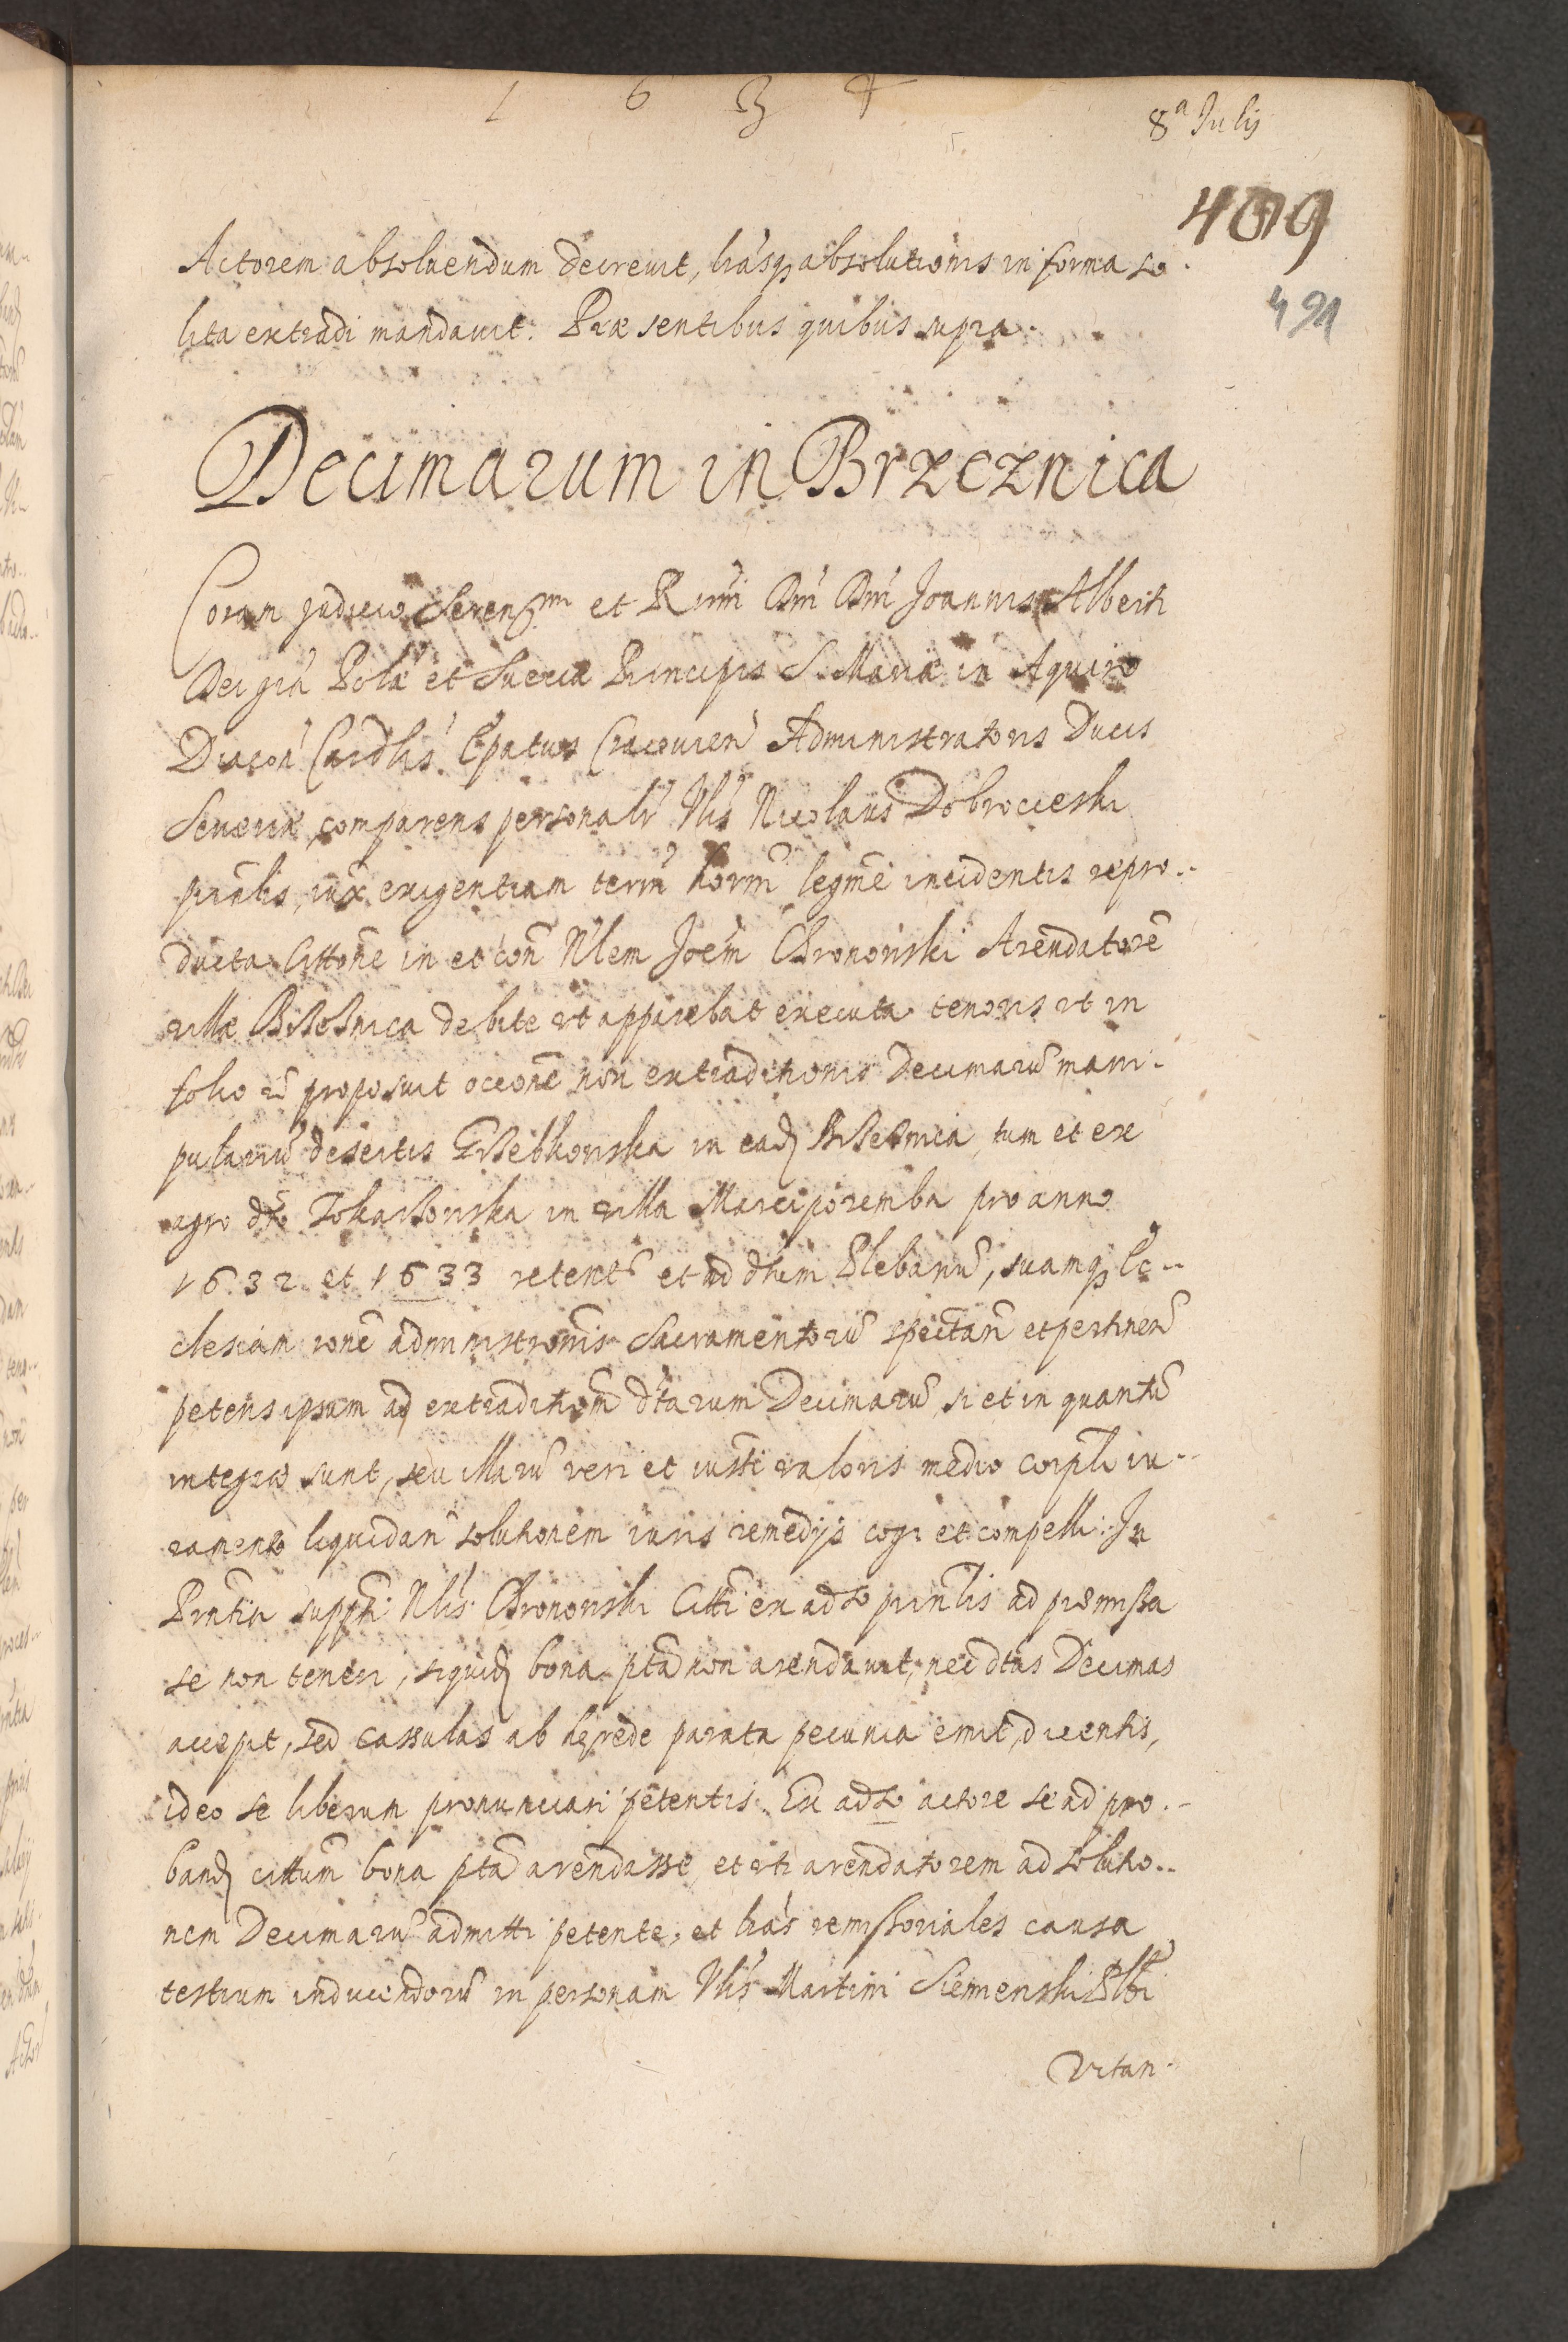 1 6 3 4
8ª Julij
409
491
Actorem absoluendum decreuit, lrasq absolutionis in forma so
lita extradi mandauit. Præsentibus quibus supra.
Decimarum in Brzeznica
Coram Judicio Serenmi et Rmi Dni Dni Joannis Alberti
Dei gra Polæ et Sueciæ Principis S. Mariæ in Aquiro
Diacon Cardlis Epatus Cracouien Administratoris Ducis
Seueriæ, comparens personalr Nlis Nicolaus Dobrocieski
prinlis, iux exigentiam termi horni legme incidentis repro..
ducta Cittone in et con Nlem Joem Chronowski Arendatore
villæ Brzeznica debite vt apparebat executa tenoris vt in
folio proposuit non extraditionis Decimaru mani-
pulariu desertis Grzebkowska in ead Brzeznica, tum et ex
agro dto Tokarzowska in villa Marciporemba pro anno
1632 et 1633 retent et ad dnum Plebanu, suamq Ec..
clesiam rone administronis Sacramentoru spectan et pertinen
petens ipsum ad extraditionem dtarum Decimaru, si et in quantu
integræ sunt, seu illaru veri et iusti valoris medio corpli iu..
ramento liquidan solutionem iuris remedijs cogi et compelli. In
Prntia Nlis Chronowski Citti ex adso prinlis ad præmissa
se non teneri, siquid bona ptta non arendauit, nec dtas Decimas
accepit, sed cassulas ab hærede parata pecunia emit, dicentis,
ideo se liberum pronunciari petentis. Ex adso actore se ad pro.-
band cittum bona ptta arendasse, et vti arendatorem ad solutio..
nem Decimaru admitti petente, et lras remissoriales causa
testium inducendoru in personam Nlis Martini Siemienski Plbi
Vitan.